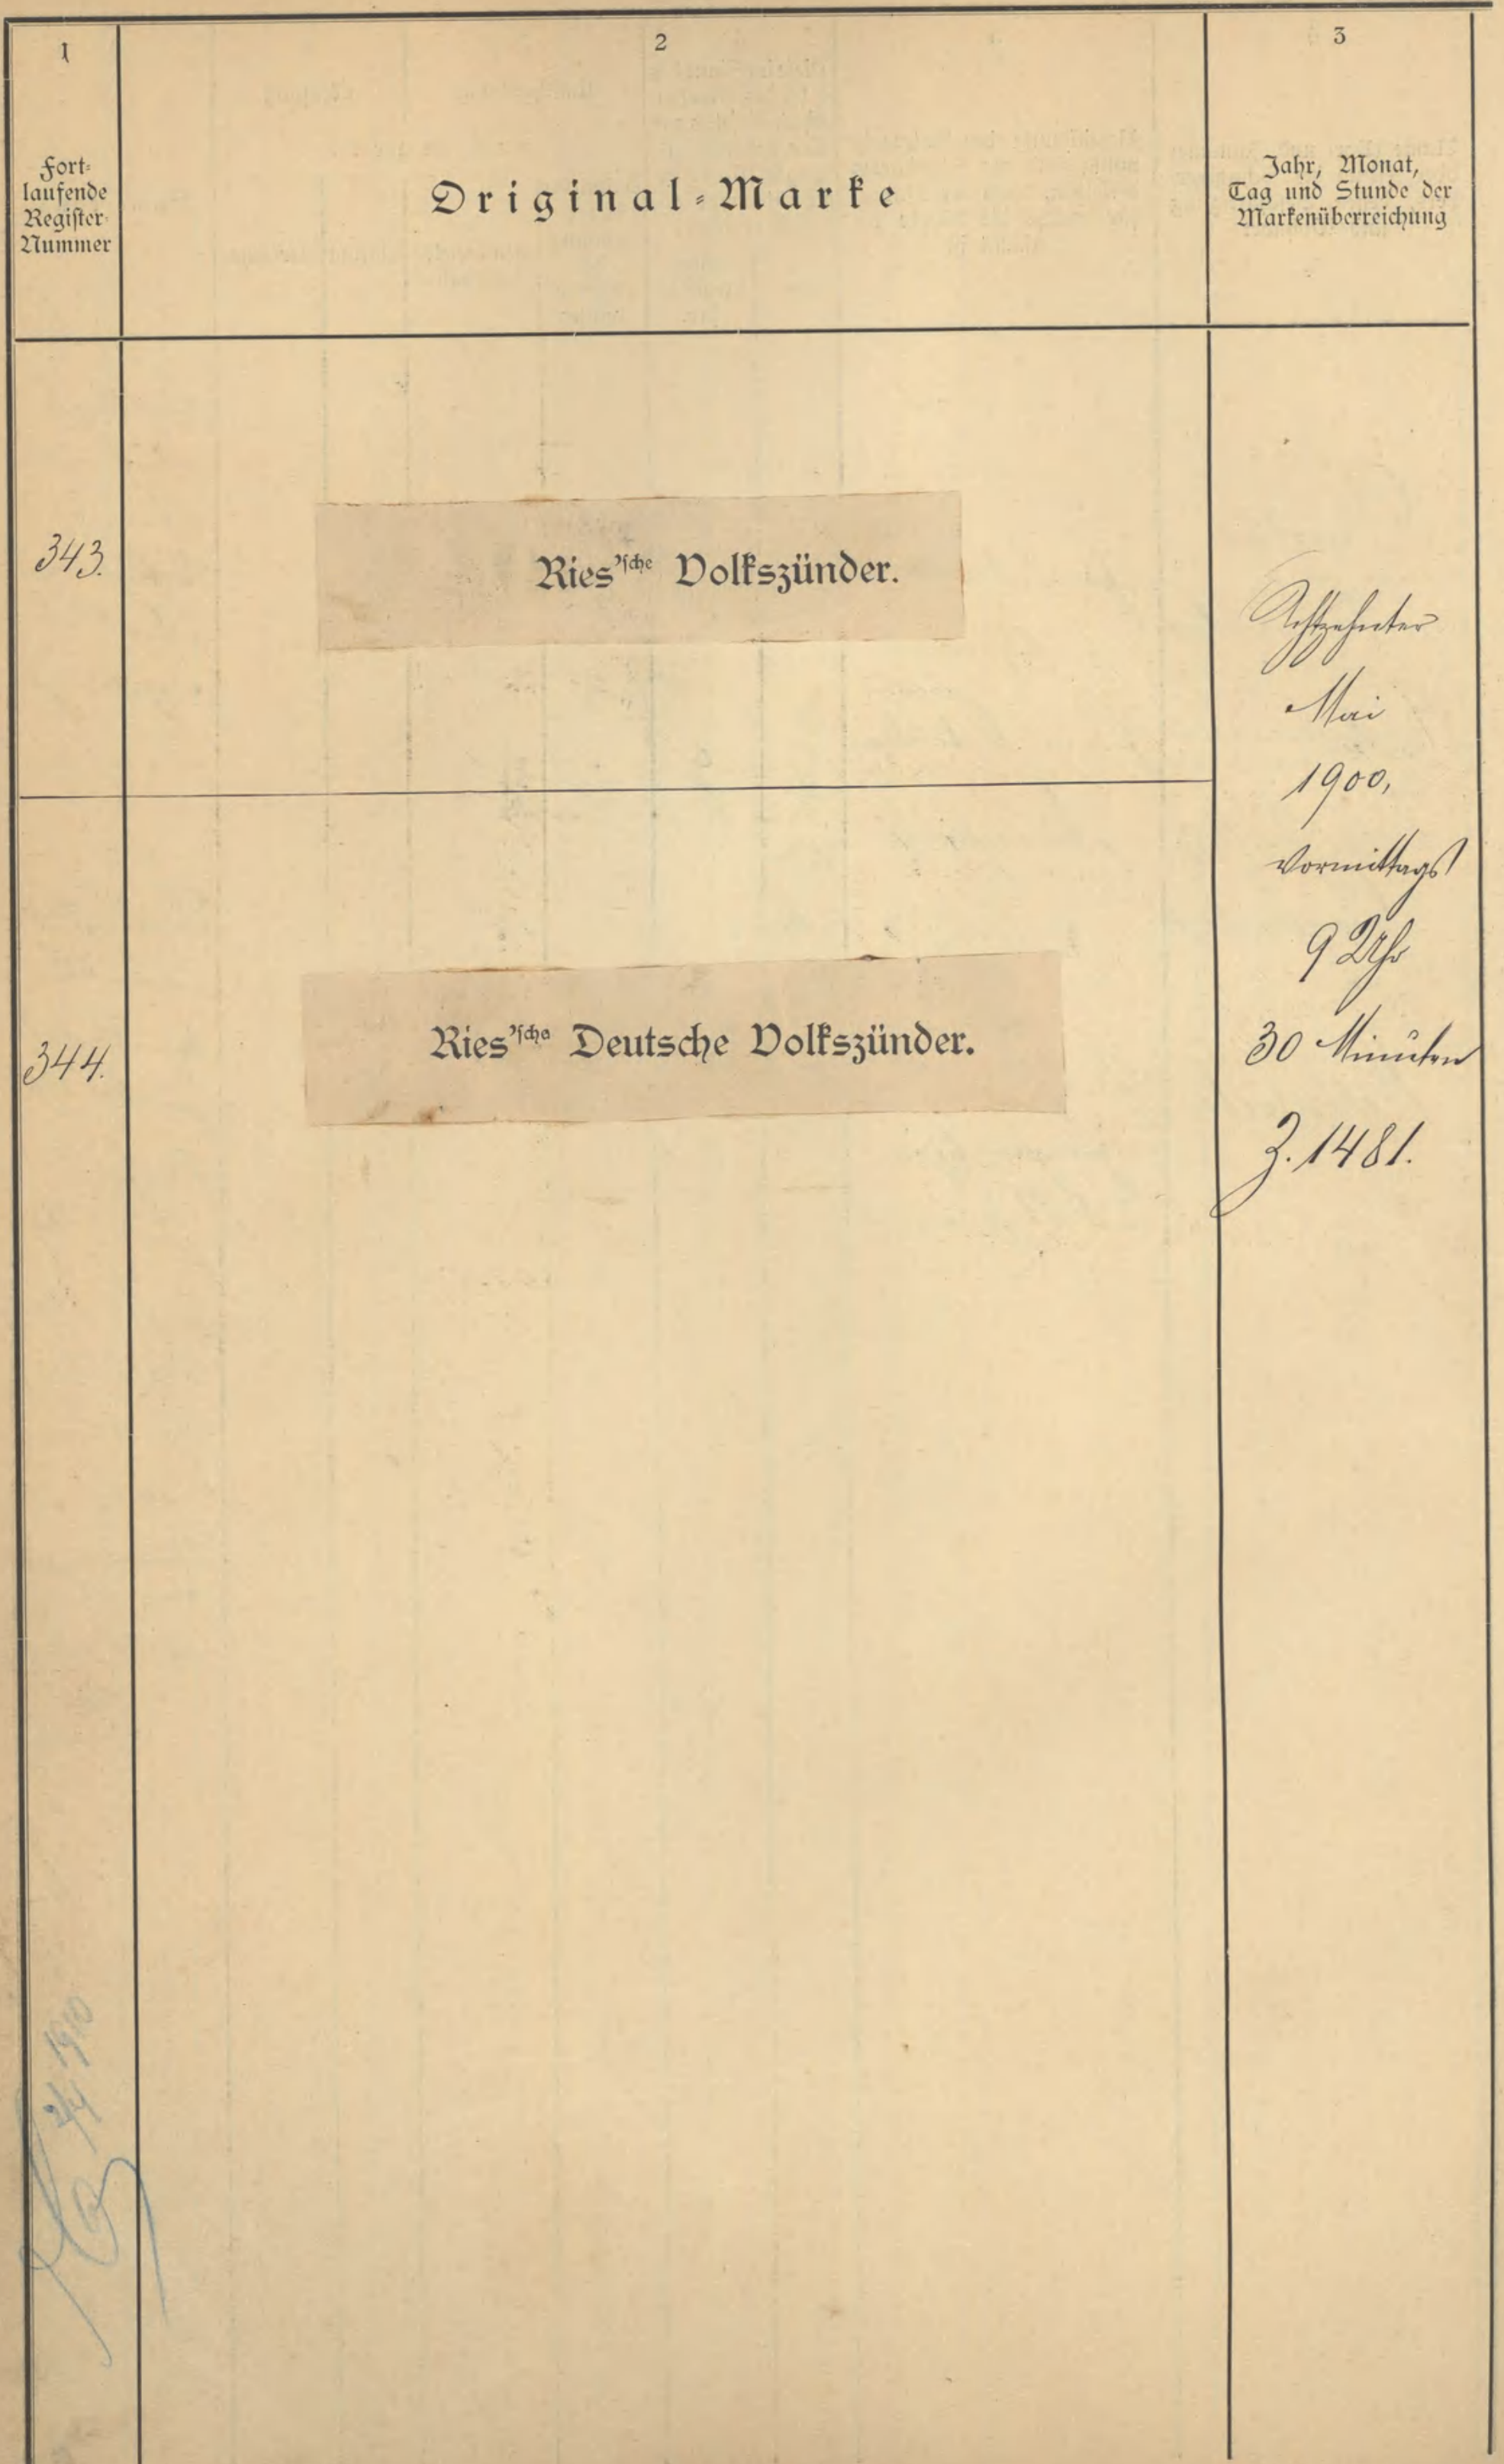 1
2
3
Fort-
laufende
Register-
Nummer
Original-Marke
Jahr, Monat,
Tag und Stunde der
Markenüberreichung
343.
Ries'sche Volkszünder.
Achtzehnter
Mai
1900,
Vormittags
9 Uhr
30 Minuten
Z. 1481.
344.
Ries'sche Deutsche Volkszünder.
1910